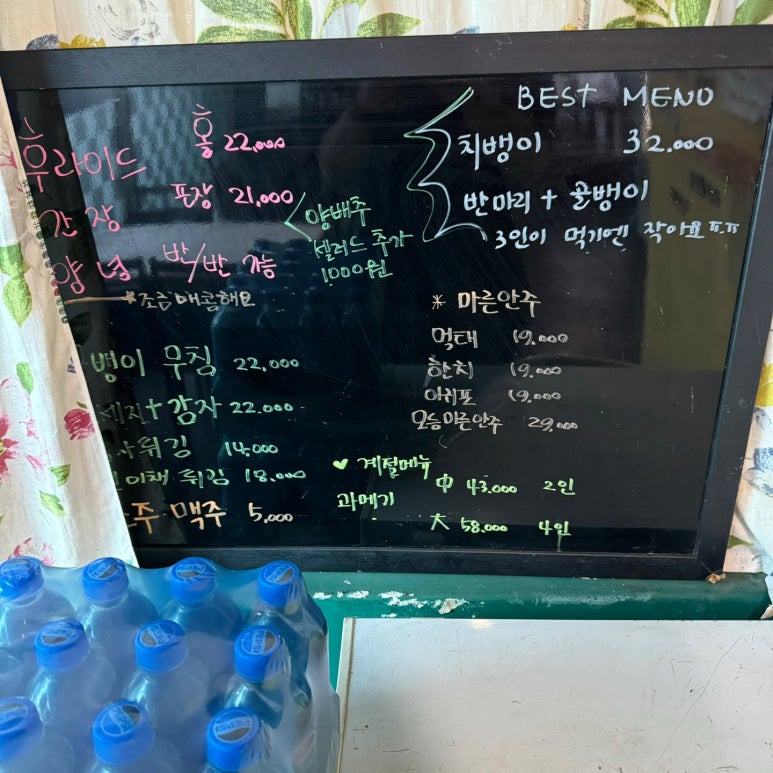 후라이드 홀 22,000
간장 포장 21,000
양념 반/반 가능
양배추
샐러드 추가
1000원
*조금 매콤해요
병이 무침 22,000
감자 22.000
튀김 14,000
튀김 18,000
주 맥주 5,000
BEST MENO
치뱅이 32,000
반마리 + 골뱅이
3인이 먹기엔 작아요ㅠㅠ
* 마른안주
먹태 19,000
한치 19,000
아귀포 19,000
모듬마른안주 29,000
♥ 계절메뉴
과메기
中 43,000 2인
大 58,000 4인
PEPSI
PEPSI
PEPSI
PEPSI